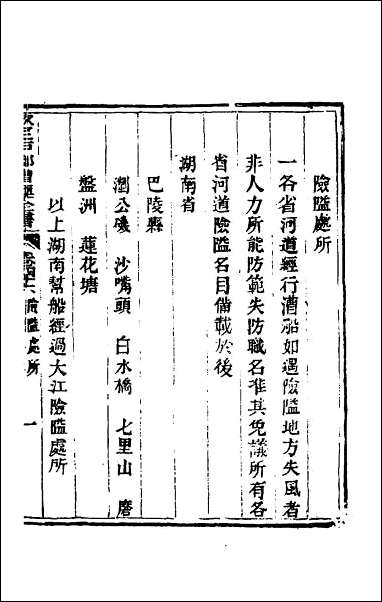 險隘處所
一各省河道經行漕船如遇險隘地方失風者
非人力所能防範失防職名准其免議所有各
省河道險隘名目備載於後
湖南省
巴陵縣
瀏公磯　沙嘴頭　白水橋　七里山　磨
盤洲　蓮花塘
以上湖南幫船經過大江險隘處所
欽定戶部漕運全書　卷　險隘處所　一